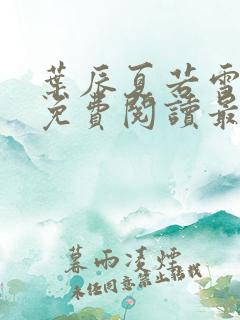 葉辰夏若雪
免費閱讀最
暮雨淒煙
未經同意禁止轉載